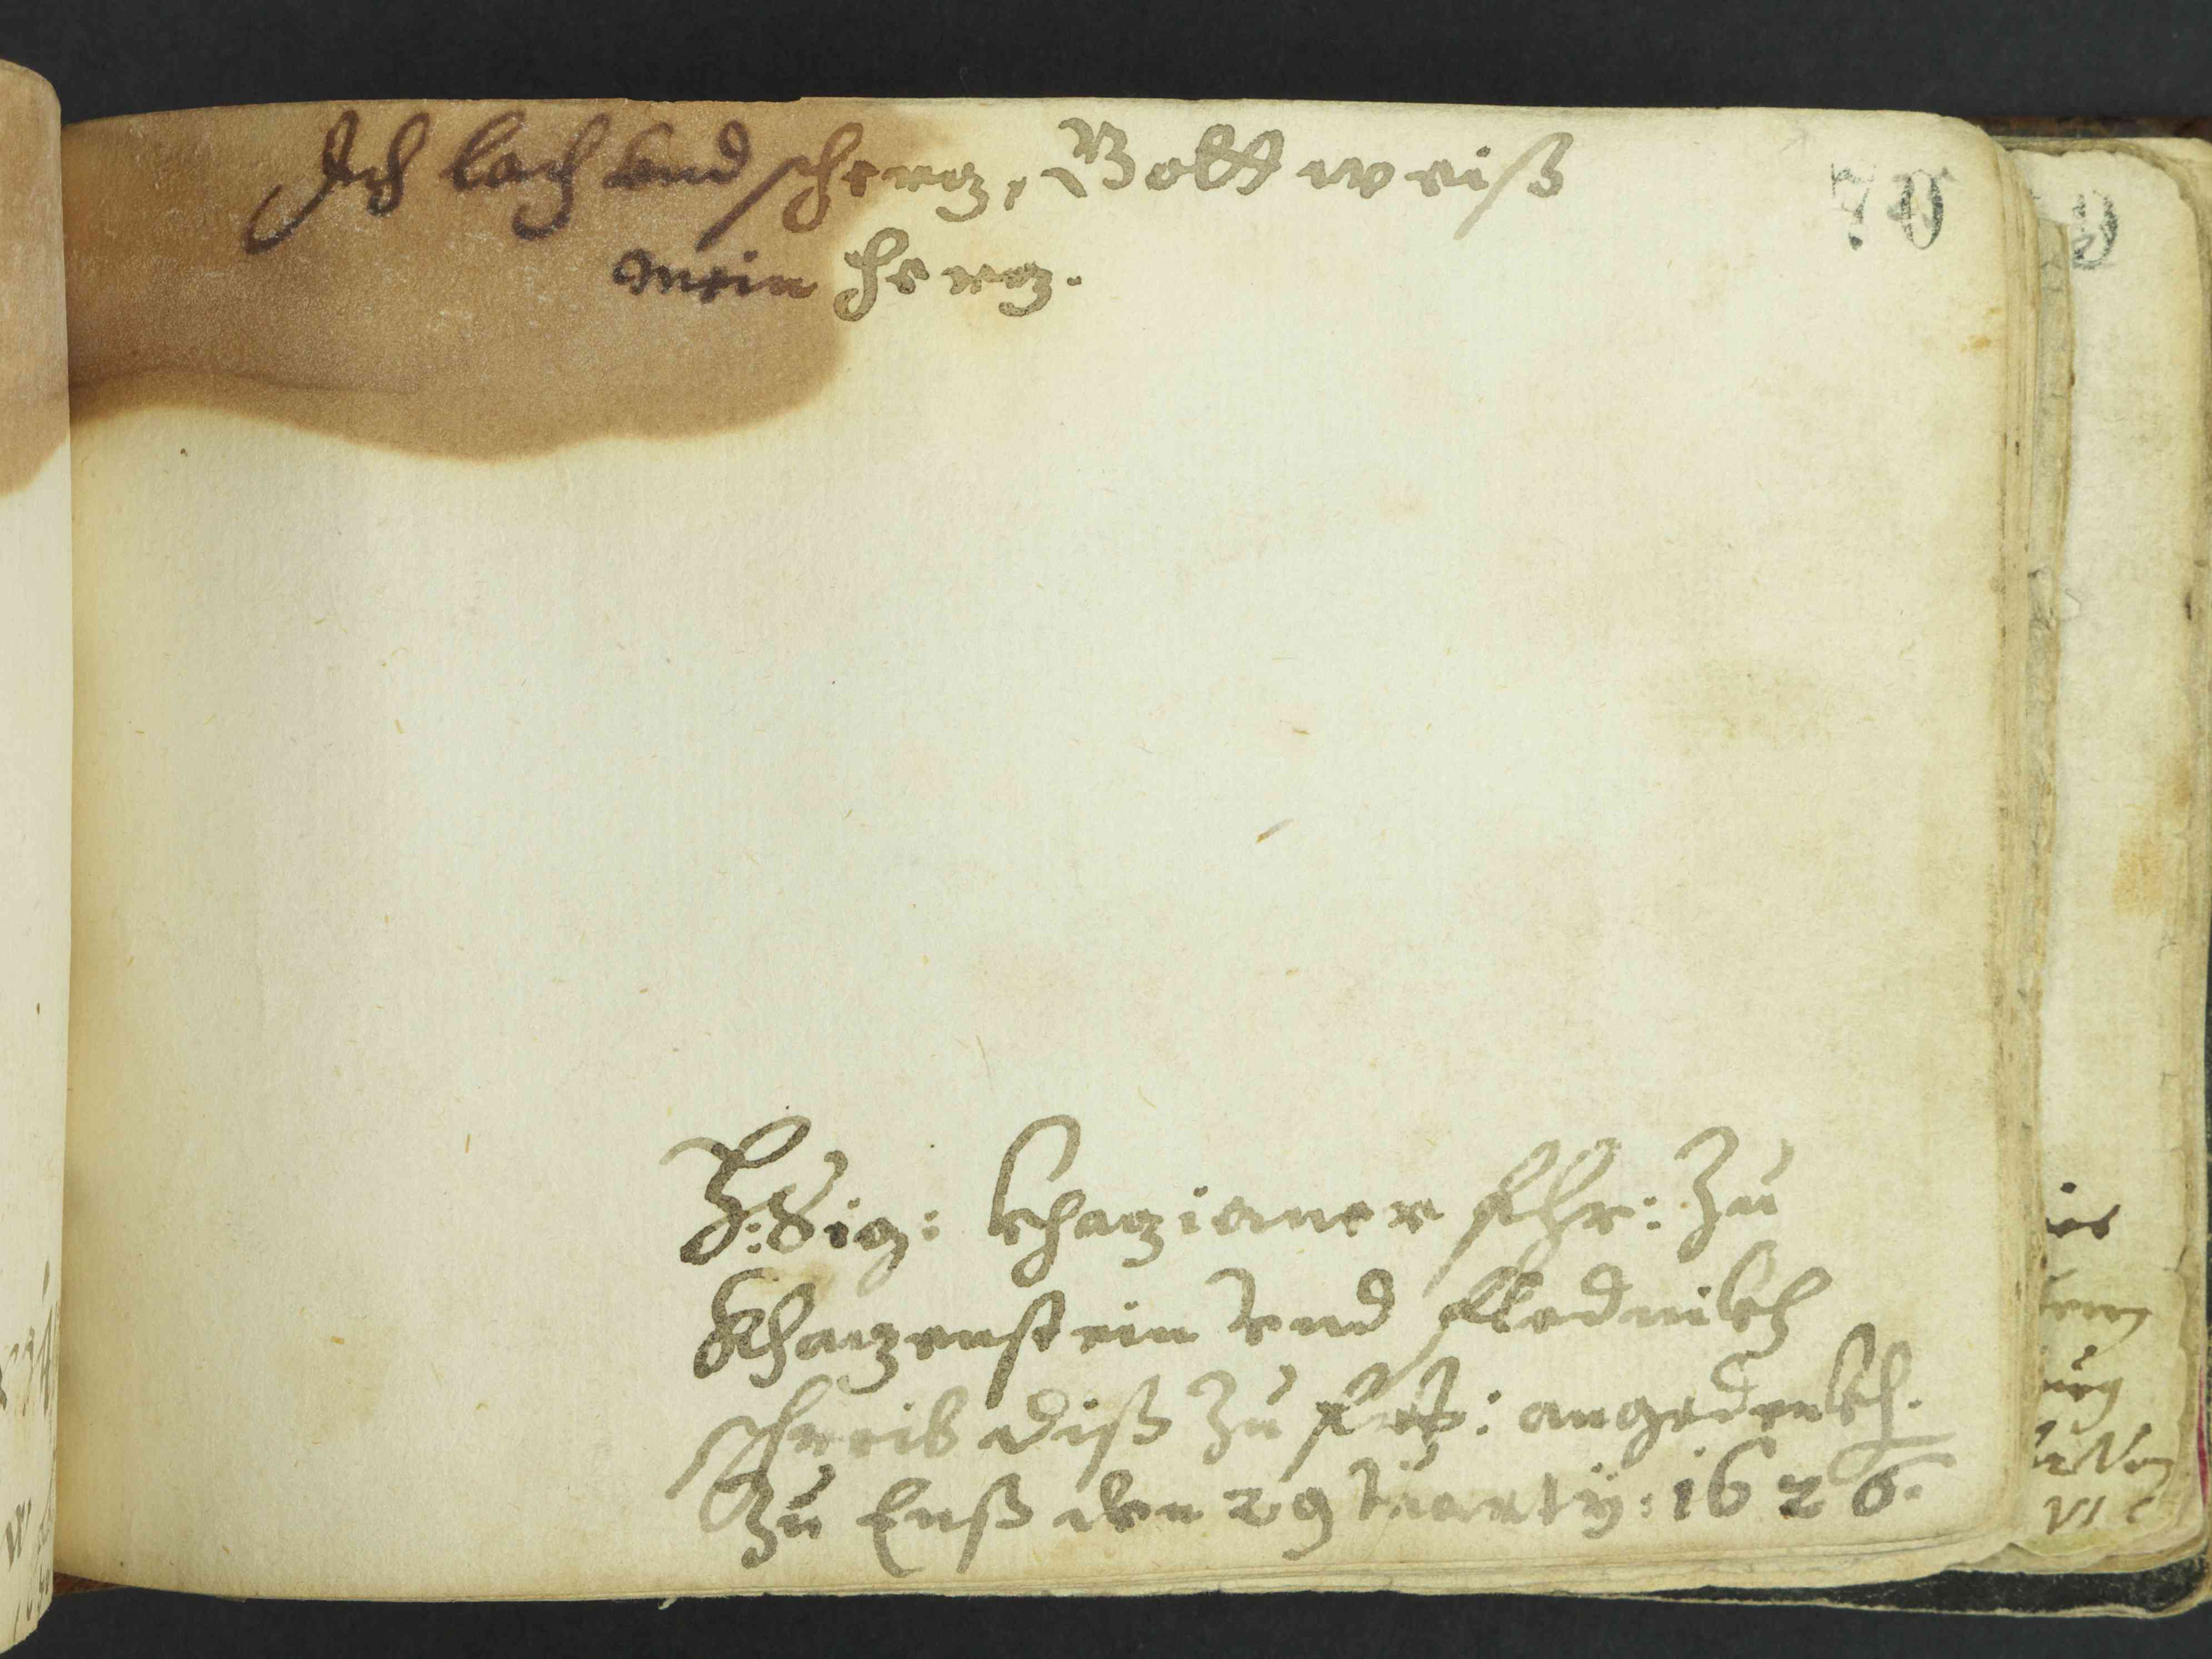 Ich lach vnd schertz, Gott weiß
70
mein hertz.
H: Sig: Khatzianer fhr: Zu
Khatzenstein vnd flednikh
schreib diß Zu angedenkh.
Zu Enß den 29 Marty: 1626.